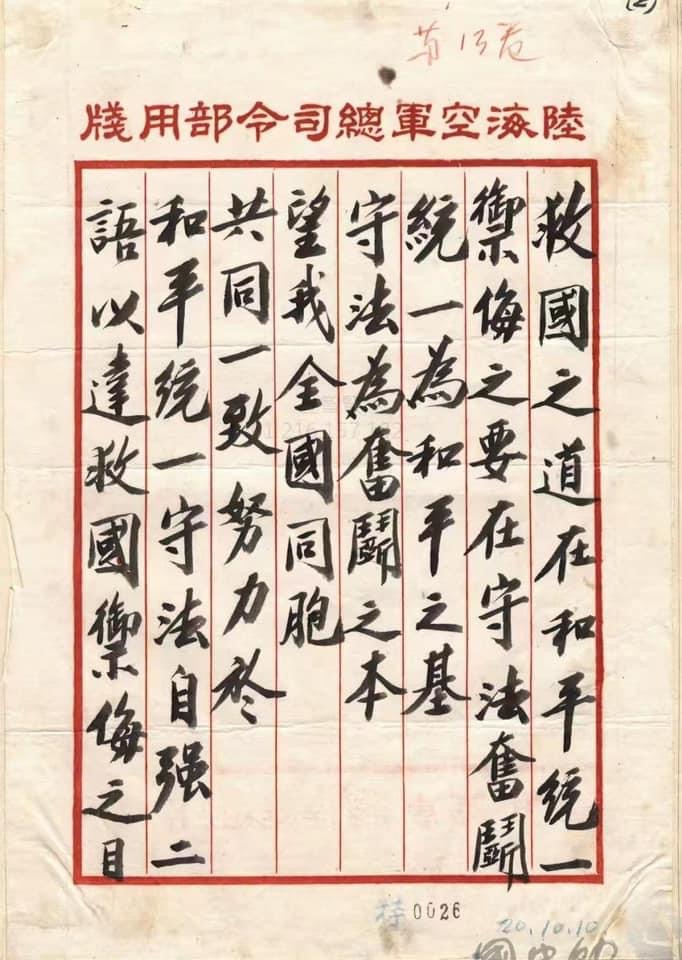 (2)
陸海空軍總司令部用牋
救國之道在和平統一
禦侮之要在守法奮鬪
統一為和平之基
守法為奮鬪之本
望我全國同胞
共同一致努力於
和平統一守法自强二
語以達救國禦侮之目
特 0026
20.10.10